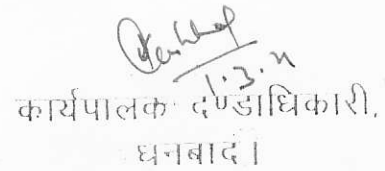 1.3.11
कार्यपालक दण्डाधिकारी,
धनबाद।